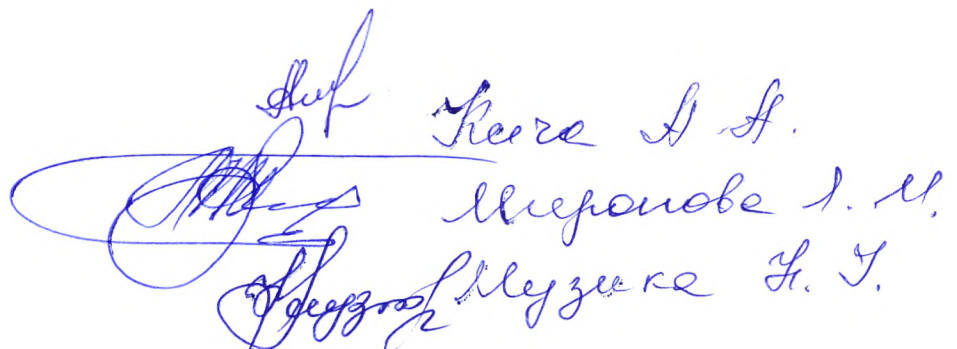 Кича А. А.
Миронова Л. М.
Музика Н. І.